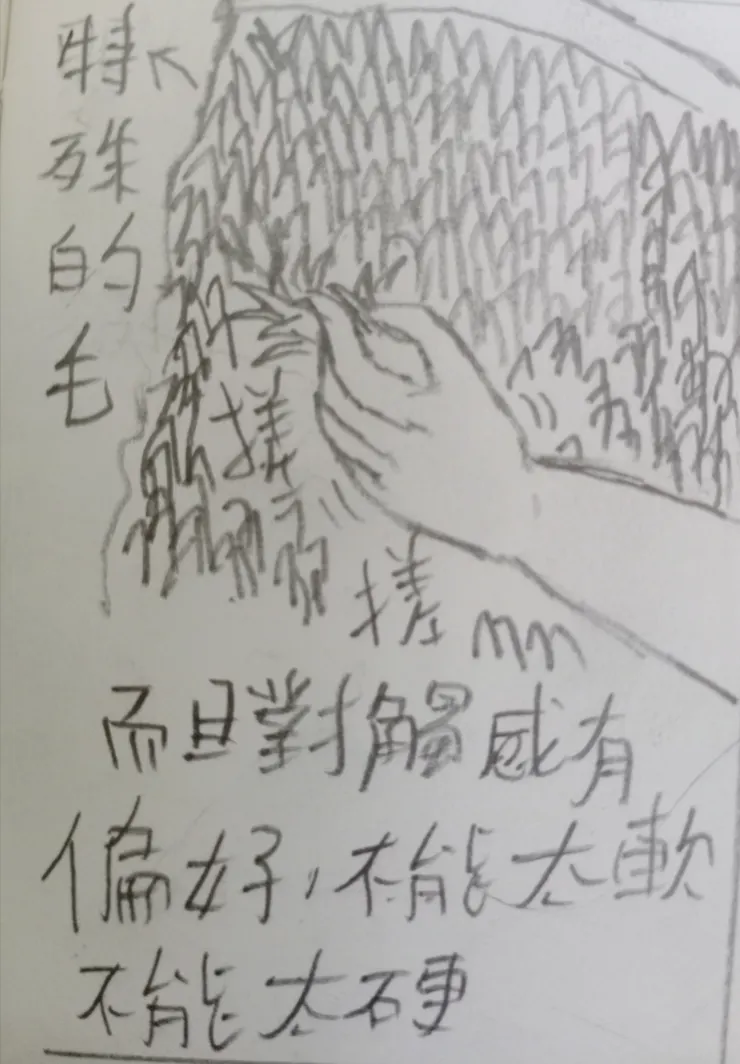 特殊的毛
搓
搓
而且對觸感有
偏好，不能太軟
不能太硬